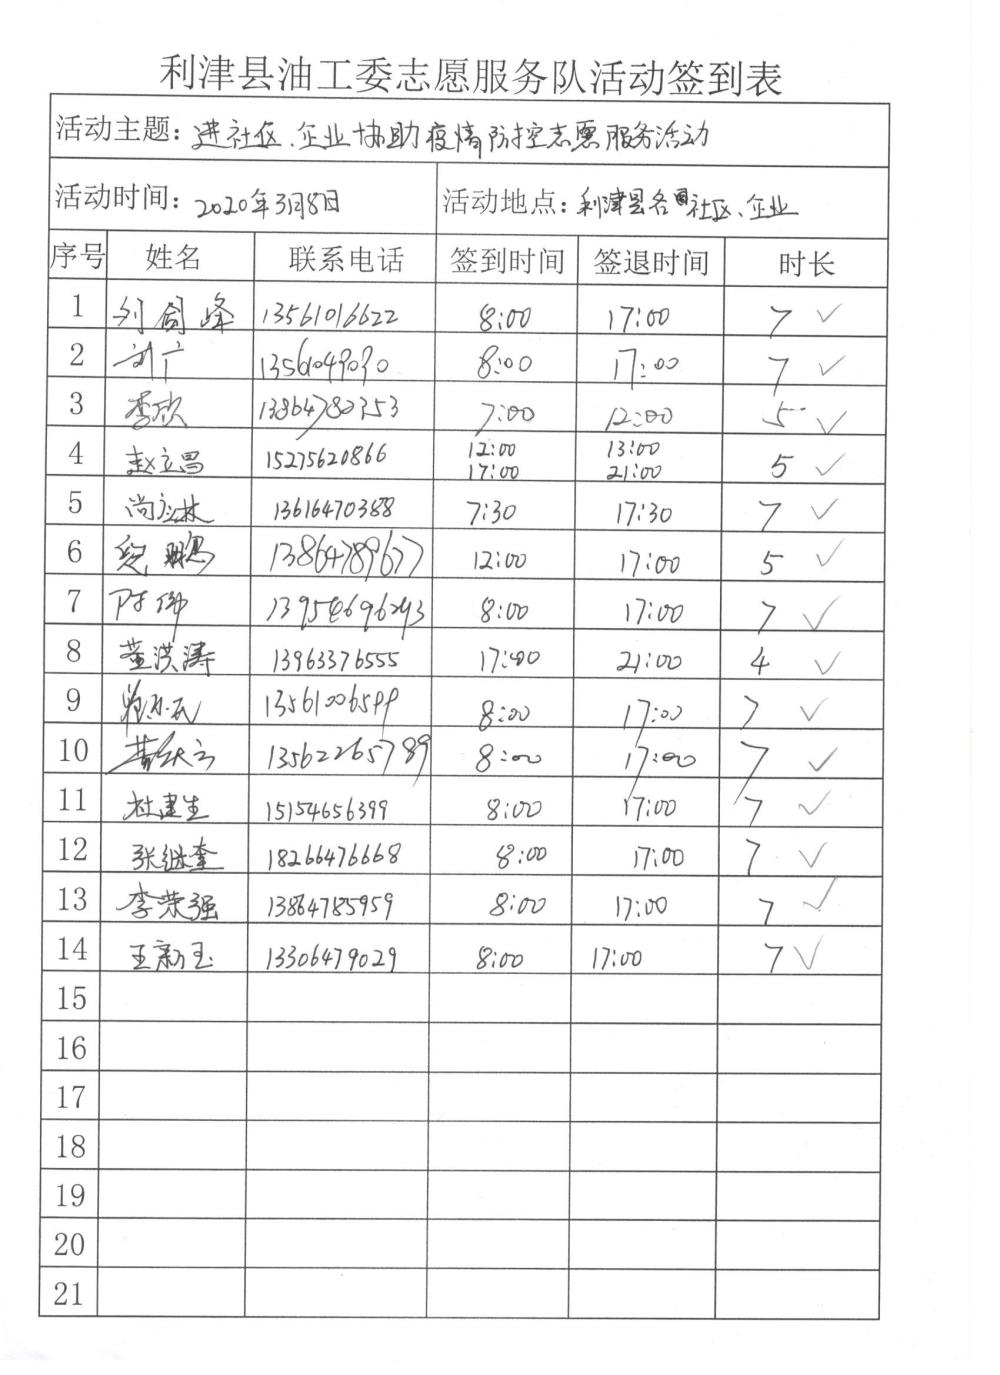 利津县油工委志愿服务队活动签到表
活动主题：进社区、企业协助疫情防控志愿服务活动
活动时间：2020年3月8日 活动地点：利津县各社区、企业
序号 姓名 联系电话 签到时间 签退时间 时长
1 刘同峰 13561016622 8:00 17:00 7 ✓
2 刘广 13561049090 8:00 17:00 7 ✓
3 李欣 13864783753 7:00 12:00 5 ✓
4 赵立昌 15275620866 12:00 13:00 5 ✓
17:00 21:00
5 尚立林 13616470388 7:30 17:30 7 ✓
6 鹏 13864789677 12:00 17:00 5 ✓
7 陈伟 13954696293 8:00 17:00 7 ✓
8 董洪涛 13963376555 17:00 21:00 4 ✓
9 13561006599 8:00 17:00 7 ✓
10 13562265789 8:00 17:00 7 ✓
11 杜建生 15154656399 8:00 17:00 7 ✓
12 张继奎 18266476668 8:00 17:00 7 ✓
13 李荣强 13864785959 8:00 17:00 7 ✓
14 王新玉 13306479029 8:00 17:00 7 ✓
15
16
17
18
19
20
21